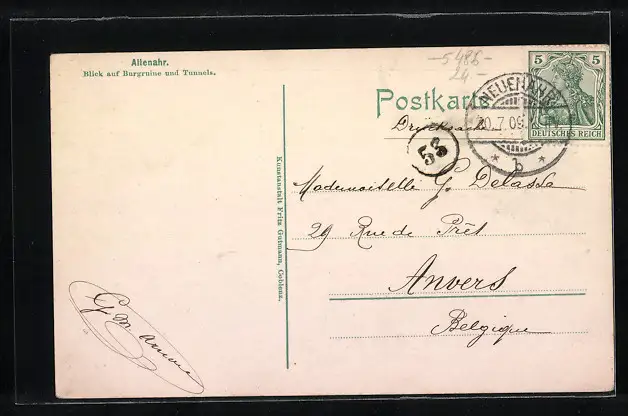 Altenahr.
Blick auf Burgruine und Tunnels.
5486
24.-
Postkarte
Drucksache
NEUENAHR
20.7.09
* b *
5 5
DEUTSCHES REICH
53
Mademoiselle G. Delasda
29 Rue de Prêt
Anvers
Belgique
Kunstanstalt Fritz Gutmann, Coblenz.
G. M.